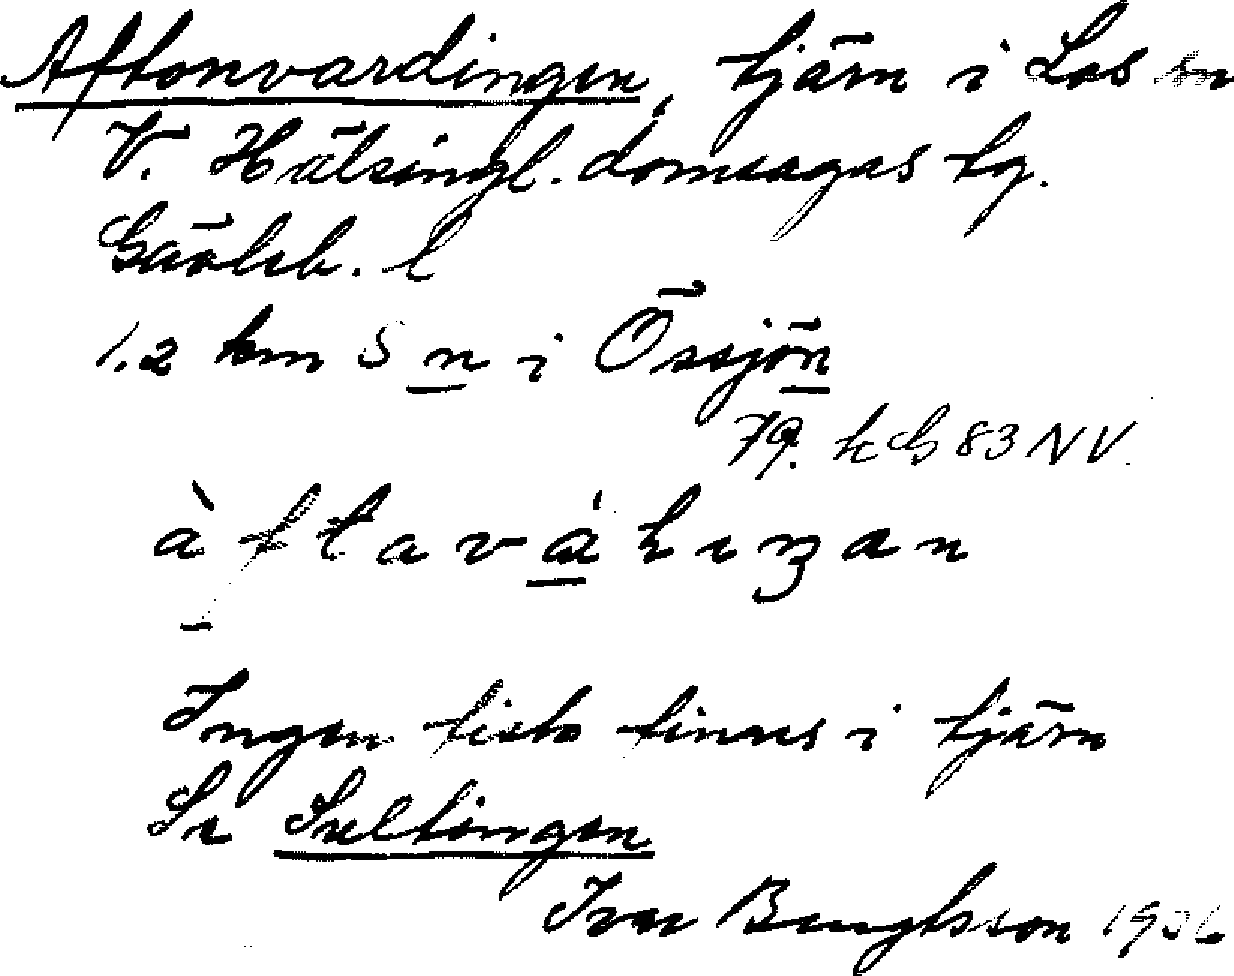 Aftonvardingen, tjärn i Los sn
V. Hälsingl. domsagas tg.
Gävleb. l
1.2 km S n i Össjön
79. k G 83 NV.
Ingen fisk finns i tjärn
Se Sveltingen
Ivar Bengtsson 1936